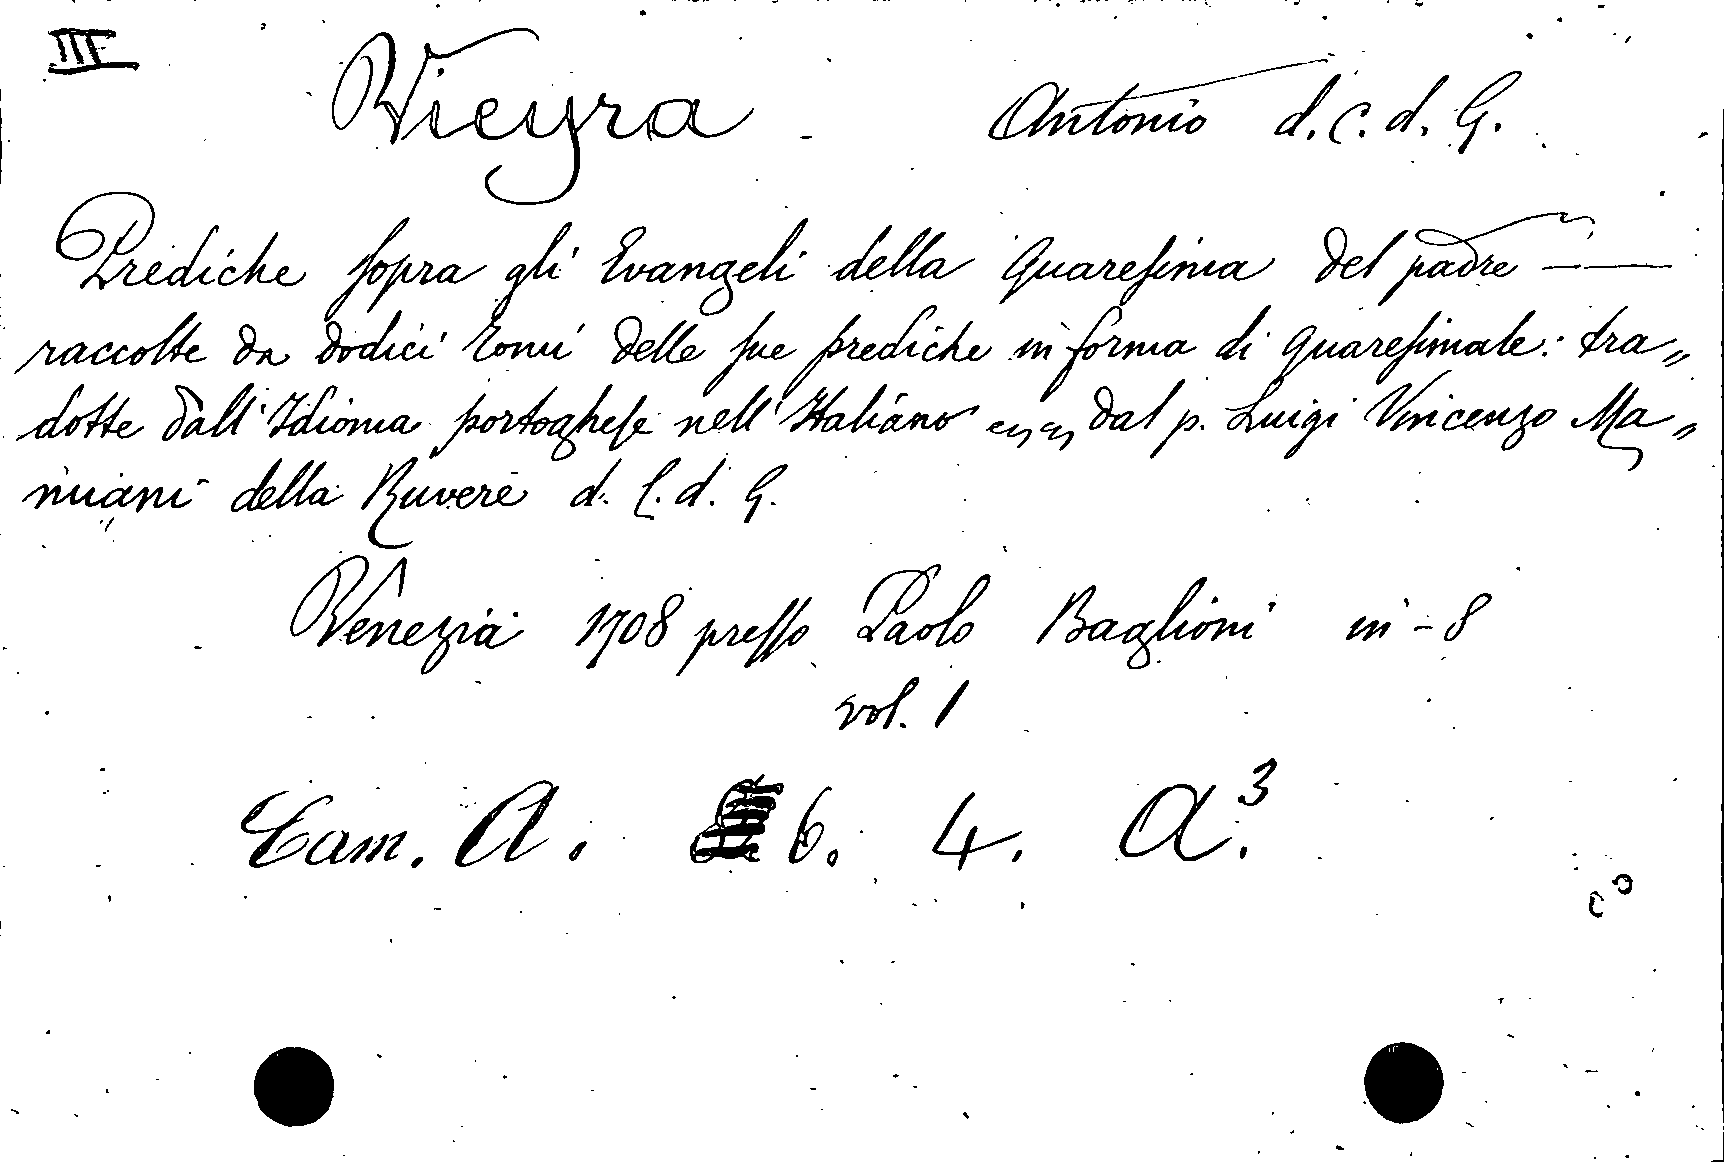 III
Vieyra Antonio d. C. d. G.
Prediche sopra gli Evangeli della Quaresima del padre ——
raccolte da dodici tomi delle sue prediche in forma di Quaresimale: tra„
dotte dall'Idioma portoghese nell'Italiano dal p. Luigi Vincenzo Ma„
miani della Ruvere d. C. d. G.
Venezia 1708 presso Paolo Baglioni in-8
vol. 1
Cam. A. 6. 4. A.³